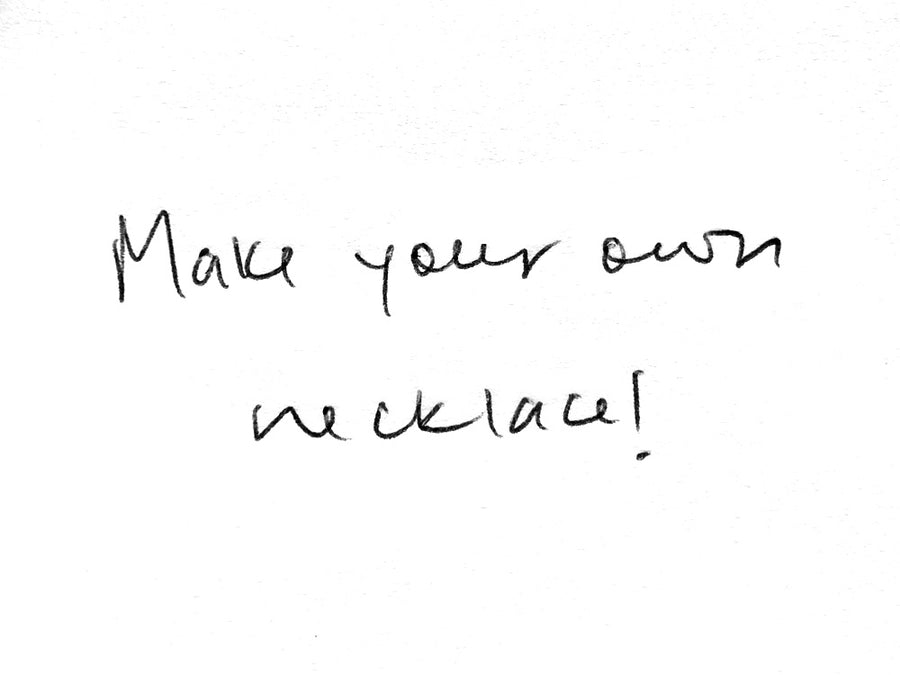 Make your own
necklace!